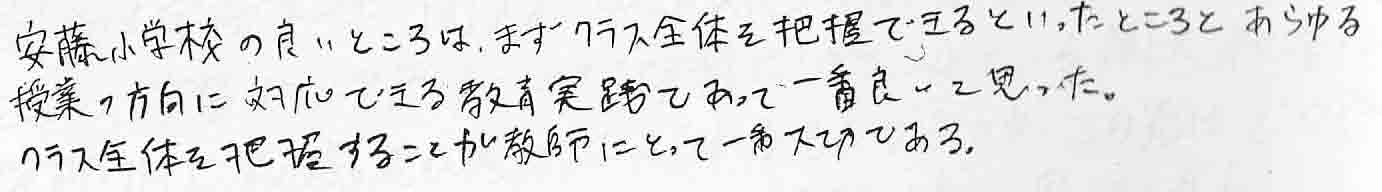 安藤小学校の良いところは、まずクラス全体を把握できるといったところと あらゆる
授業の方向に対応できる教育実践であって一番良いと思った。
クラス全体を把握することが教師にとって一番大切である。